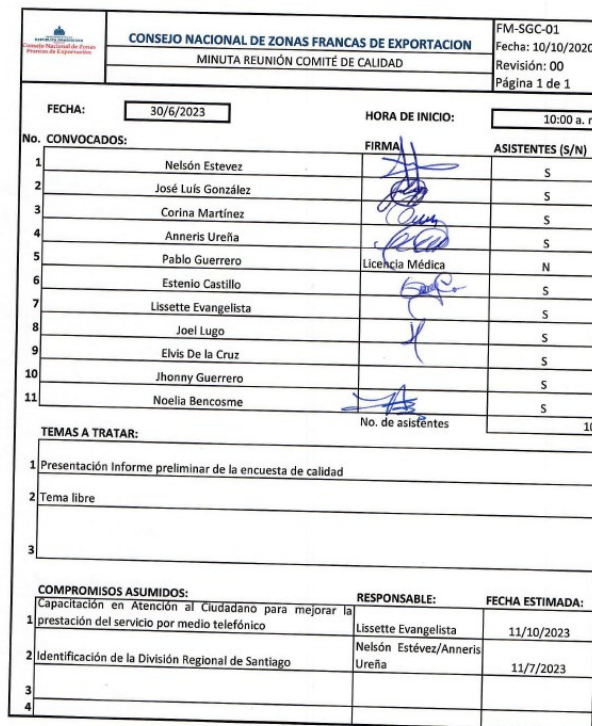 REPÚBLICA DOMINICANA
Consejo Nacional de Zonas
Francas de Exportación
CONSEJO NACIONAL DE ZONAS FRANCAS DE EXPORTACION
MINUTA REUNIÓN COMITÉ DE CALIDAD
FM-SGC-01
Fecha: 10/10/2020
Revisión: 00
Página 1 de 1
FECHA: 30/6/2023 HORA DE INICIO: 10:00 a.
No. CONVOCADOS: FIRMA ASISTENTES (S/N)
1 Nelsón Estevez S
2 José Luís González S
3 Corina Martínez S
4 Anneris Ureña S
5 Pablo Guerrero Licencia Médica N
6 Estenio Castillo S
7 Lissette Evangelista S
8 Joel Lugo S
9 Elvis De la Cruz S
10 Jhonny Guerrero S
11 Noelia Bencosme S
No. de asistentes 10
TEMAS A TRATAR:
1 Presentación Informe preliminar de la encuesta de calidad
2 Tema libre
3
COMPROMISOS ASUMIDOS: RESPONSABLE: FECHA ESTIMADA:
Capacitación en Atención al Ciudadano para mejorar la
1 prestación del servicio por medio telefónico Lissette Evangelista 11/10/2023
Nelsón Estévez/Anneris
2 Identificación de la División Regional de Santiago Ureña 11/7/2023
3
4